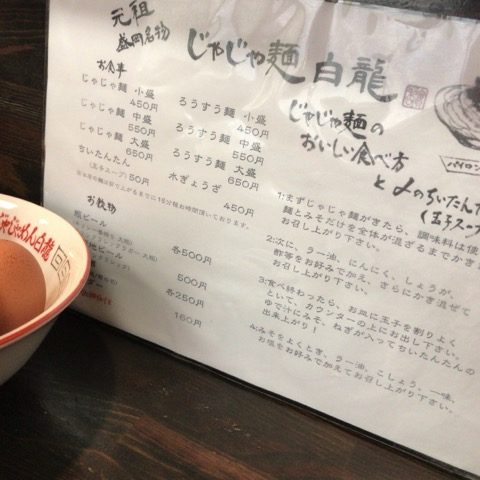 元祖
盛岡名物
じゃじゃ麺 白龍
お食事
じゃじゃ麺 小盛
450円
じゃじゃ麺 中盛
550円
じゃじゃ麺 大盛
650円
ちいたんたん
(玉子スープ) 50円
ろうすう麺 小盛
450円
ろうすう麺 中盛
550円
ろうすう麺 大盛
650円
水ぎょうざ
450円
お飲物
瓶ビール
各500円
地ビール
500円
各250円
160円
じゃじゃ麺の
おいしい食べ方
と〆のちいたんた
(玉子スープ
パイロン
1:まずじゃじゃ麺がきたら、調味料は使
麺とみそだけを全体が混ざるまでかき
お召し上がり下さい。
2:次に、ラー油、にんにく、しょうが、
酢等をお好みで加え、さらにかき混ぜて
お召し上がり下さい。
3:食べ終わったら、お皿に玉子を割りよく
といて、カウンターの上にお出し下さい。
ゆで汁にみそ、ねぎが入ってちいたんたんの
出来上がり！
4:みそをよくとき、ラー油、こしょう、一味、
お塩をお好みで加えてお召し上がり下さい。
じゃじゃめん白龍